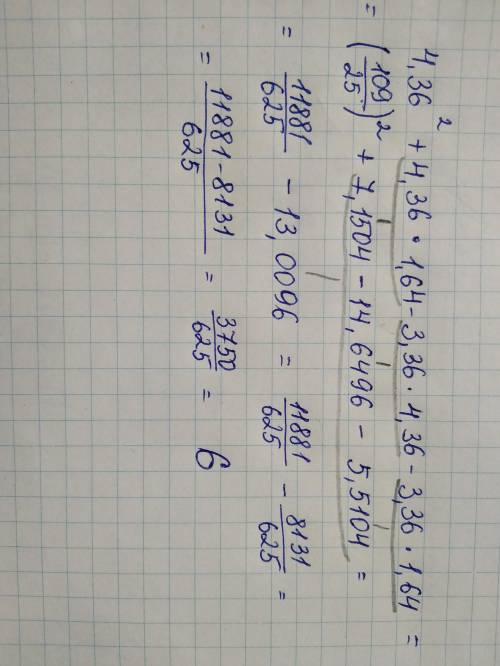 4,36² + 4,36 · 1,64 - 3,36 · 4,36 - 3,36 · 1,64 =
= (109/25)² + 7,1504 - 14,6496 - 5,5104 =
= 11881/625 - 13,0096 = 11881/625 - 8131/625 =
= 11881-8131/625 = 3750/625 = 6